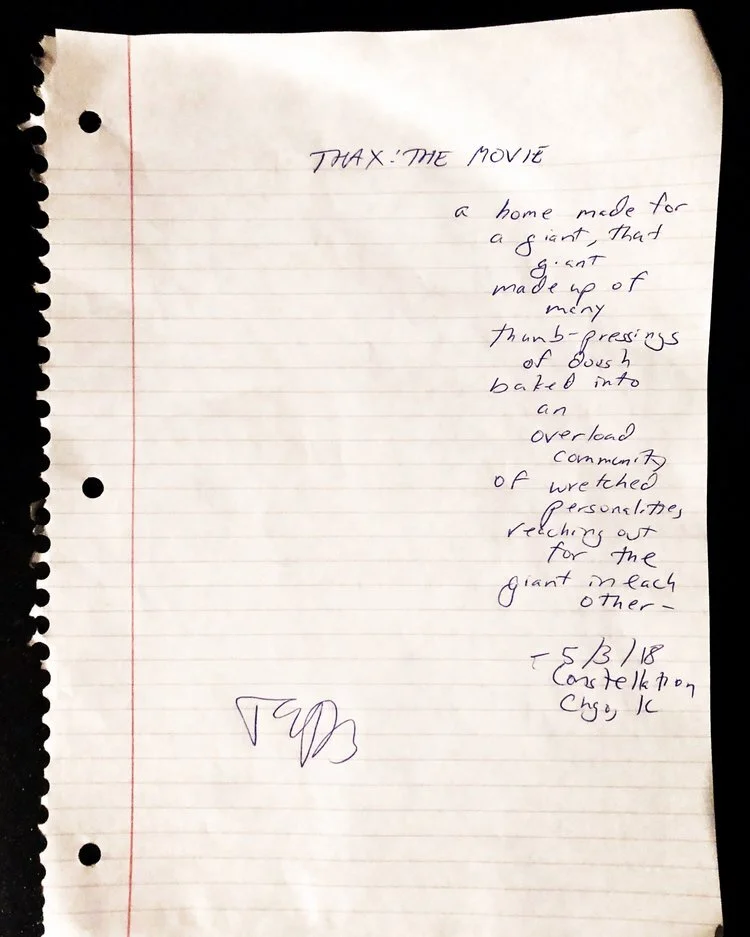 THAX: THE MOVIE
a home made for
a giant, that
giant
made up of
many
thumb-pressings
of dough
baked into
an
overload
community
of wretched
personalities
reaching out
for the
giant in each
other-
- 5/3/18
Constellation
Chgo, IL